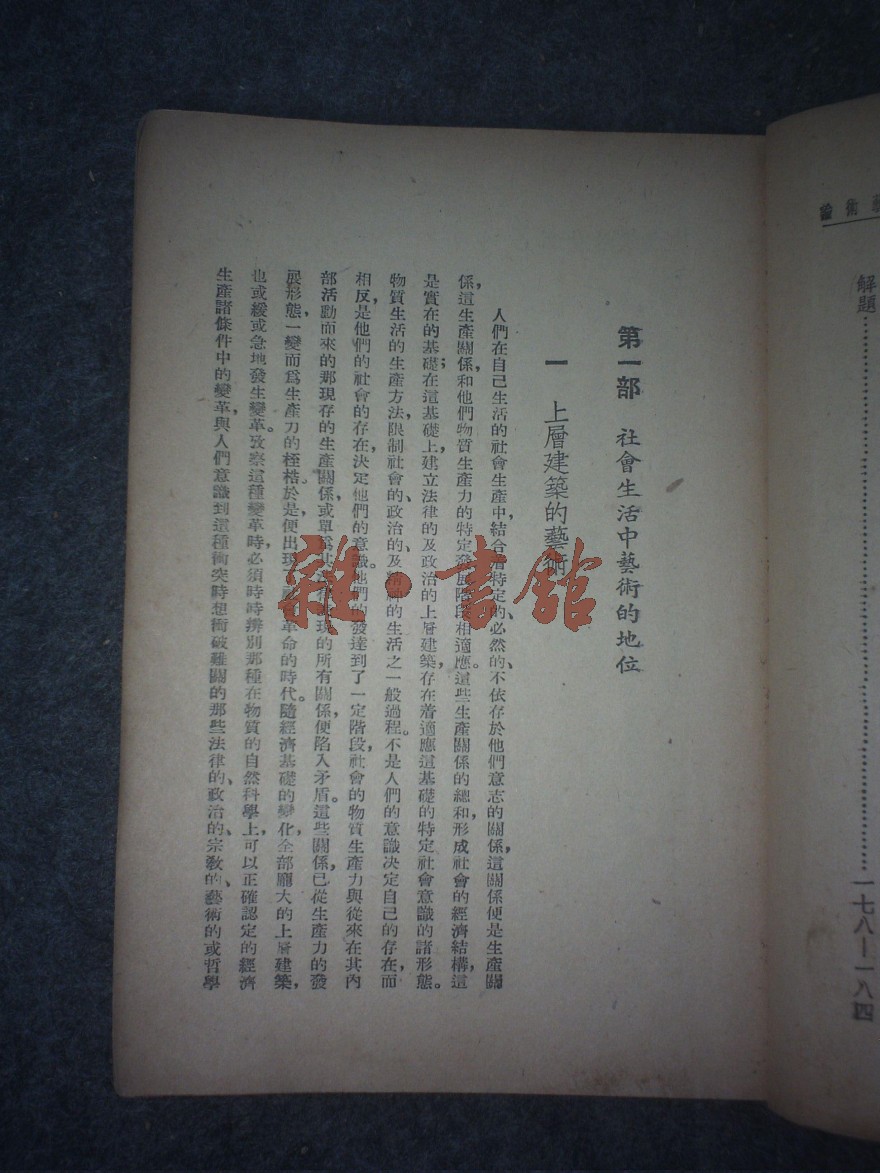 術論
解題……一七八—一八四
第一部 社會生活中藝術的地位
一 上層建築的藝術
人們在自己生活的社會生產中，結合着特定的、必然的、不依存於他們意志的關係，這關係便是生產關
係，這生產關係，和他們物質生產力的特定發展階段相適應。這些生產關係的總和，形成社會的經濟結構，這
是實在的基礎；在這基礎上，建立法律的及政治的上層建築，存在着適應這基礎的特定社會意識的諸形態。
物質生活的生產方法，限制社會的、政治的、及精神的生活之一般過程。不是人們的意識決定自己的存在，而
相反，是他們的社會的存在，決定他們的意識。他們的發達到了一定階段，社會的物質生產力與從來在其內
部活動而來的那現存的生產關係，或單爲其法現的所有關係，便陷入矛盾。這些關係，已從生產力的發
展形態，一變而爲生產力的桎梏。於是，便出現了社會革命的時代。隨經濟基礎的變化，全部龐大的上層建築，
也或緩或急地發生變革。攷察這種變革時，必須時時辨別那種在物質的自然科學上，可以正確認定的經濟
生產諸條件中的變革，與人們意識到這種衝突時想衝破難關的那些法律的、政治的、宗教的、藝術的或哲學
雜·書館